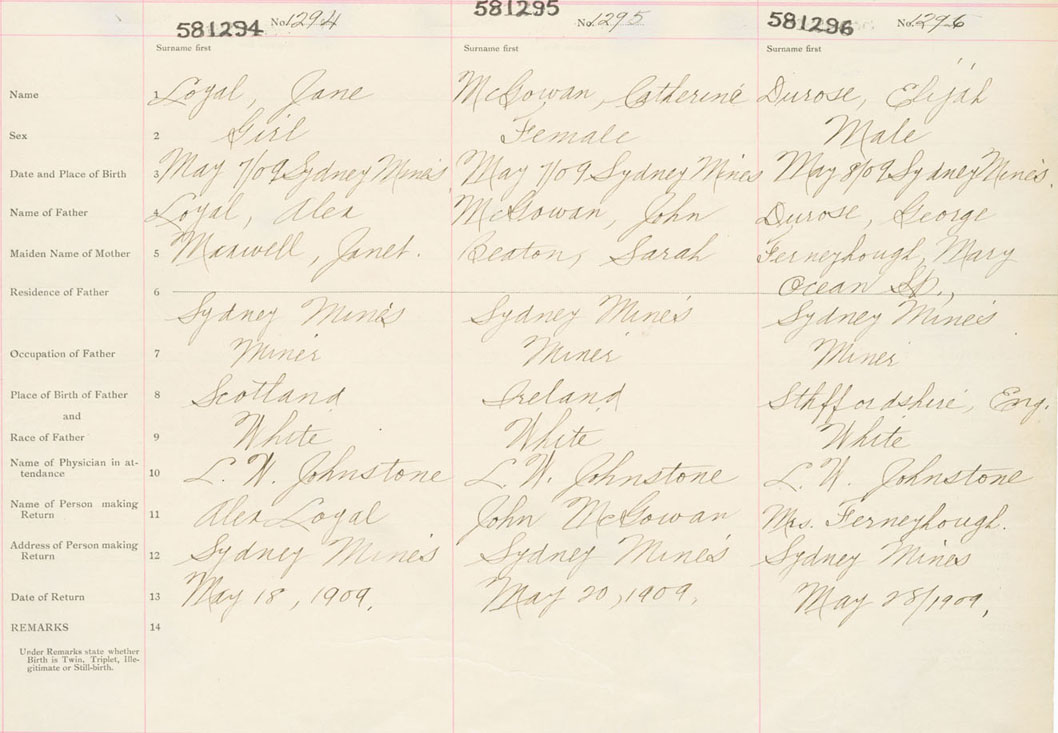 581294 No. 1294 581295 No. 1295 581296 No. 1296
Surname first Surname first Surname first
Name 1 Loyal, Jane McGowan, Catherine Durose, Elijah
Sex 2 Girl Female Male
Date and Place of Birth 3 May 7/09 Sydney Mines May 7/09 Sydney Mines May 8/09 Sydney Mines.
Name of Father 4 Loyal, Alex McGowan, John Durose, George
Maiden Name of Mother 5 Maxwell, Janet. Beaton, Sarah Ferneyhough, Mary
Residence of Father 6 Ocean St.,
Sydney Mines Sydney Mines Sydney Mines
Occupation of Father 7 Miner Miner Miner
Place of Birth of Father 8 Scotland Ireland Staffordshire, Eng.
and
Race of Father 9 White White White
Name of Physician in at-
tendance 10 L. W. Johnstone L. W. Johnstone L. W. Johnstone
Name of Person making
Return 11 Alex Loyal John McGowan Mrs. Ferneyhough.
Address of Person making
Return 12 Sydney Mines Sydney Mines Sydney Mines
Date of Return 13 May 18, 1909, May 20, 1909, May 28/1909,
REMARKS 14
Under Remarks state whether
Birth is Twin, Triplet, Ille-
gitimate or Still-birth.